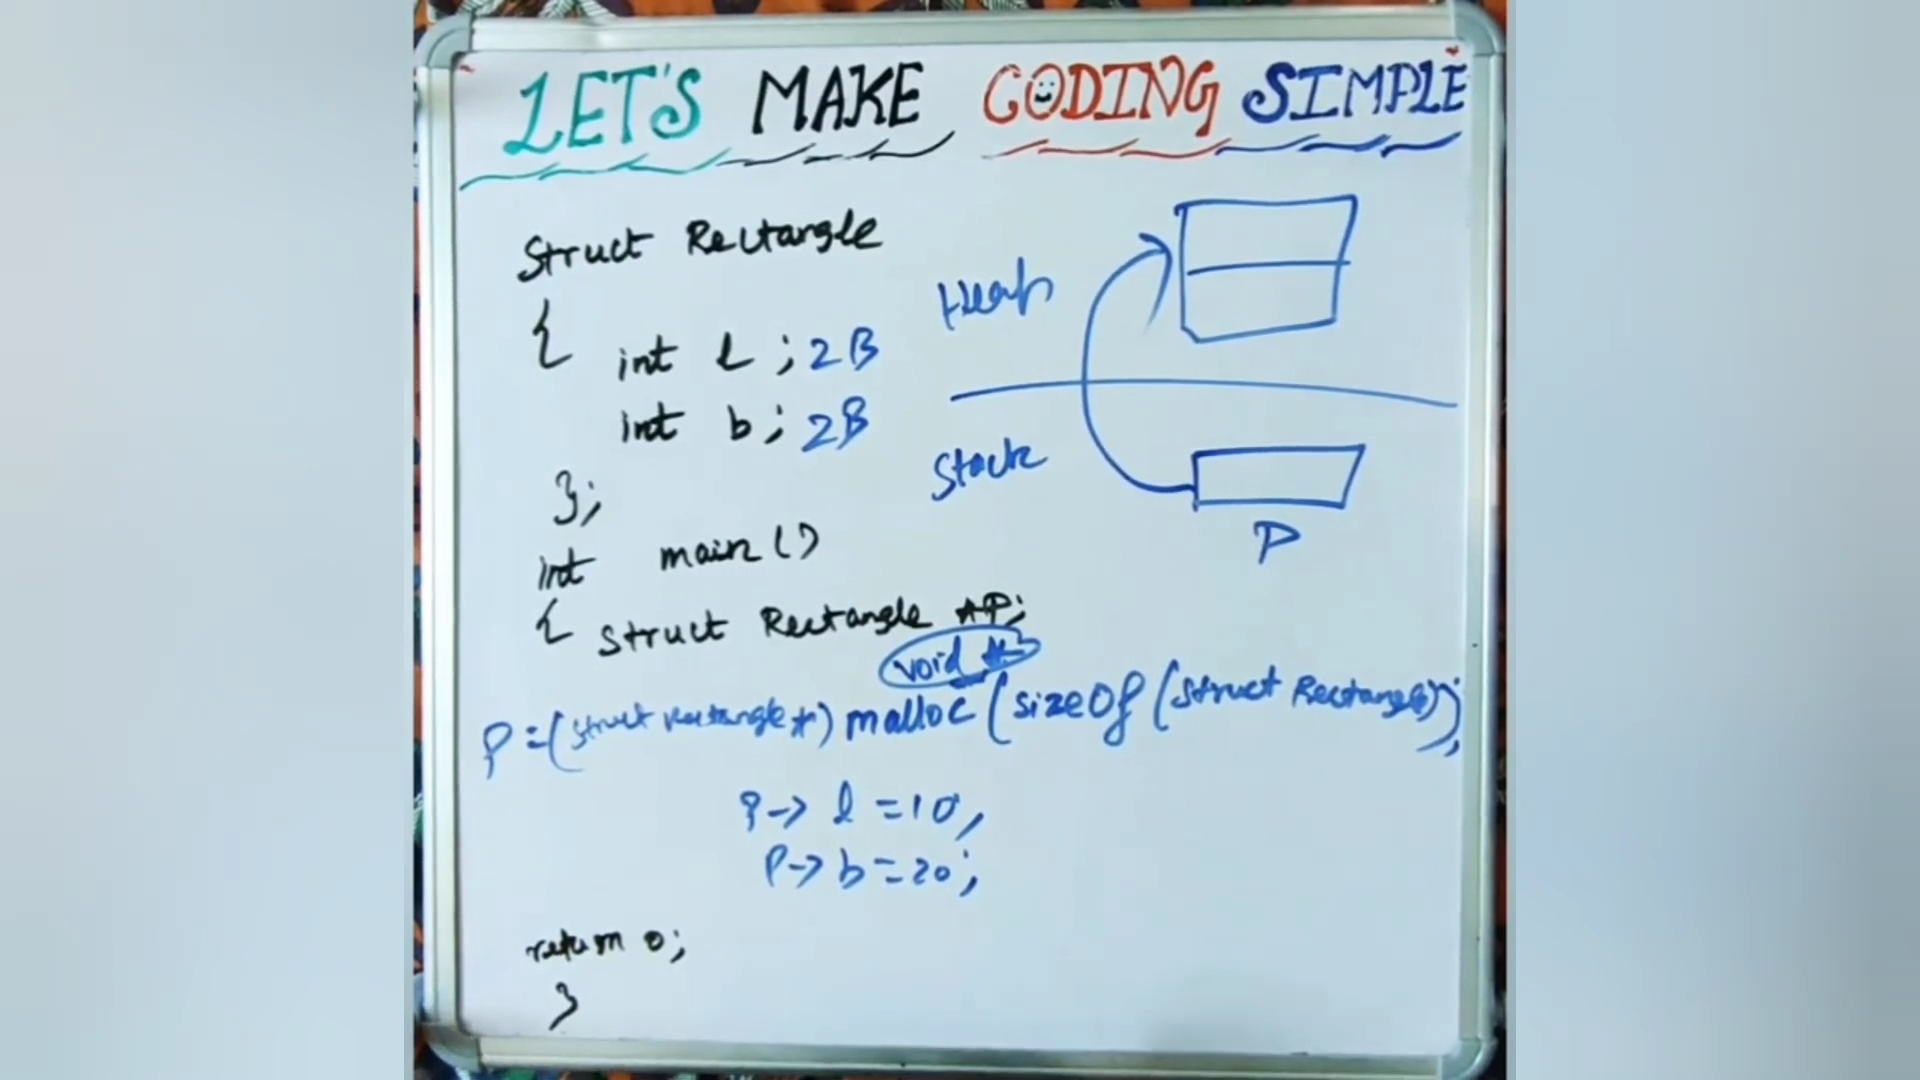 LET'S MAKE CODING SIMPLE
Struct Rectangle
{
int l ; 2B
int b ; 2B
};
int main()
{ Struct Rectangle *P;
void *
P = (Struct Rectangle *) malloc (sizeOf (Struct Rectangle));
P-> l = 10,
P-> b = 20;
return 0;
}
Heap
Stack
P